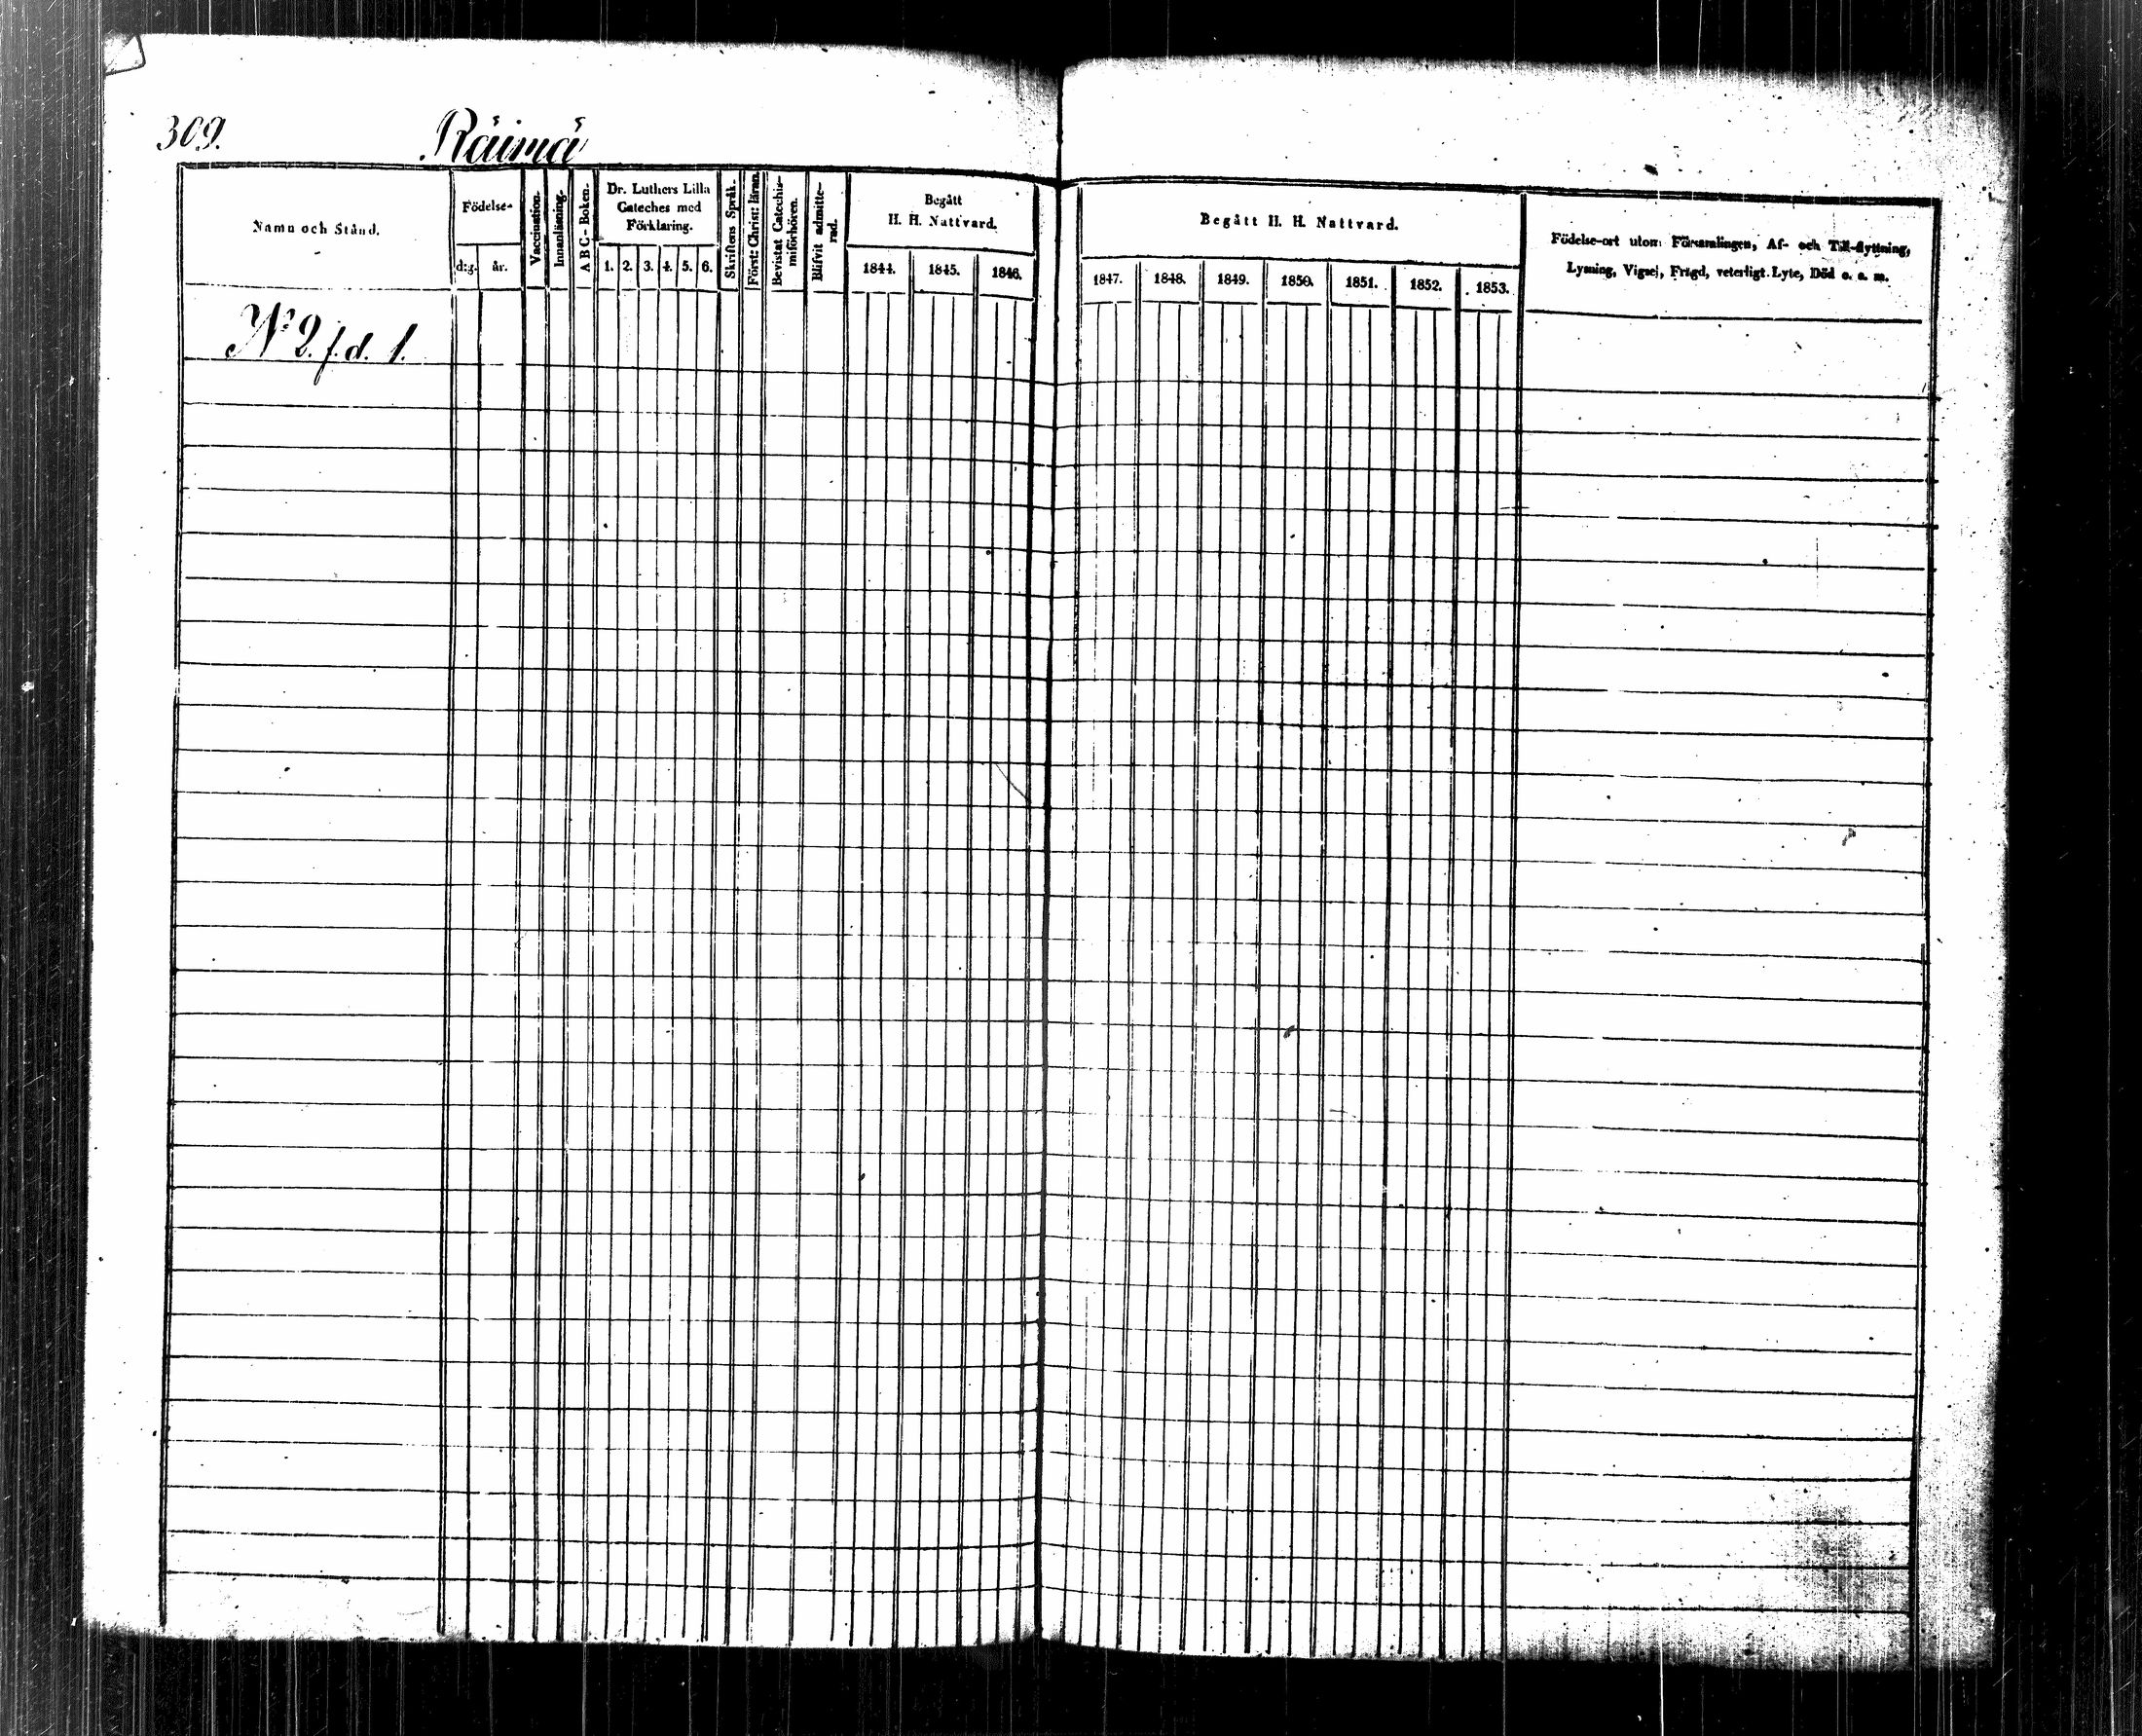 309. Räimä
Namn och Stånd.
Födelse-
d:g. år.
Vaccination.
Innanläsning.
A B C - Boken.
Dr. Luthers Lilla
Cateches med
Förklaring.
1. 2. 3. 4. 5. 6.
Skriftens Språk.
Först: Christ: läran.
Bevistat Catechis-
miförhören.
Blifvit admitte-
rad.
Begått
H. H. Nattvard.
1844. 1845. 1846.
Begått H. H. Nattvard.
1847. 1848. 1849. 1850. 1851. 1852. 1853.
Födelse-ort utom Församlingen, Af- och Till-flyttning,
Lysning, Vigsel, Frägd, veterligt Lyte, Död o. s. m.
N:o 2. f. d. 1.